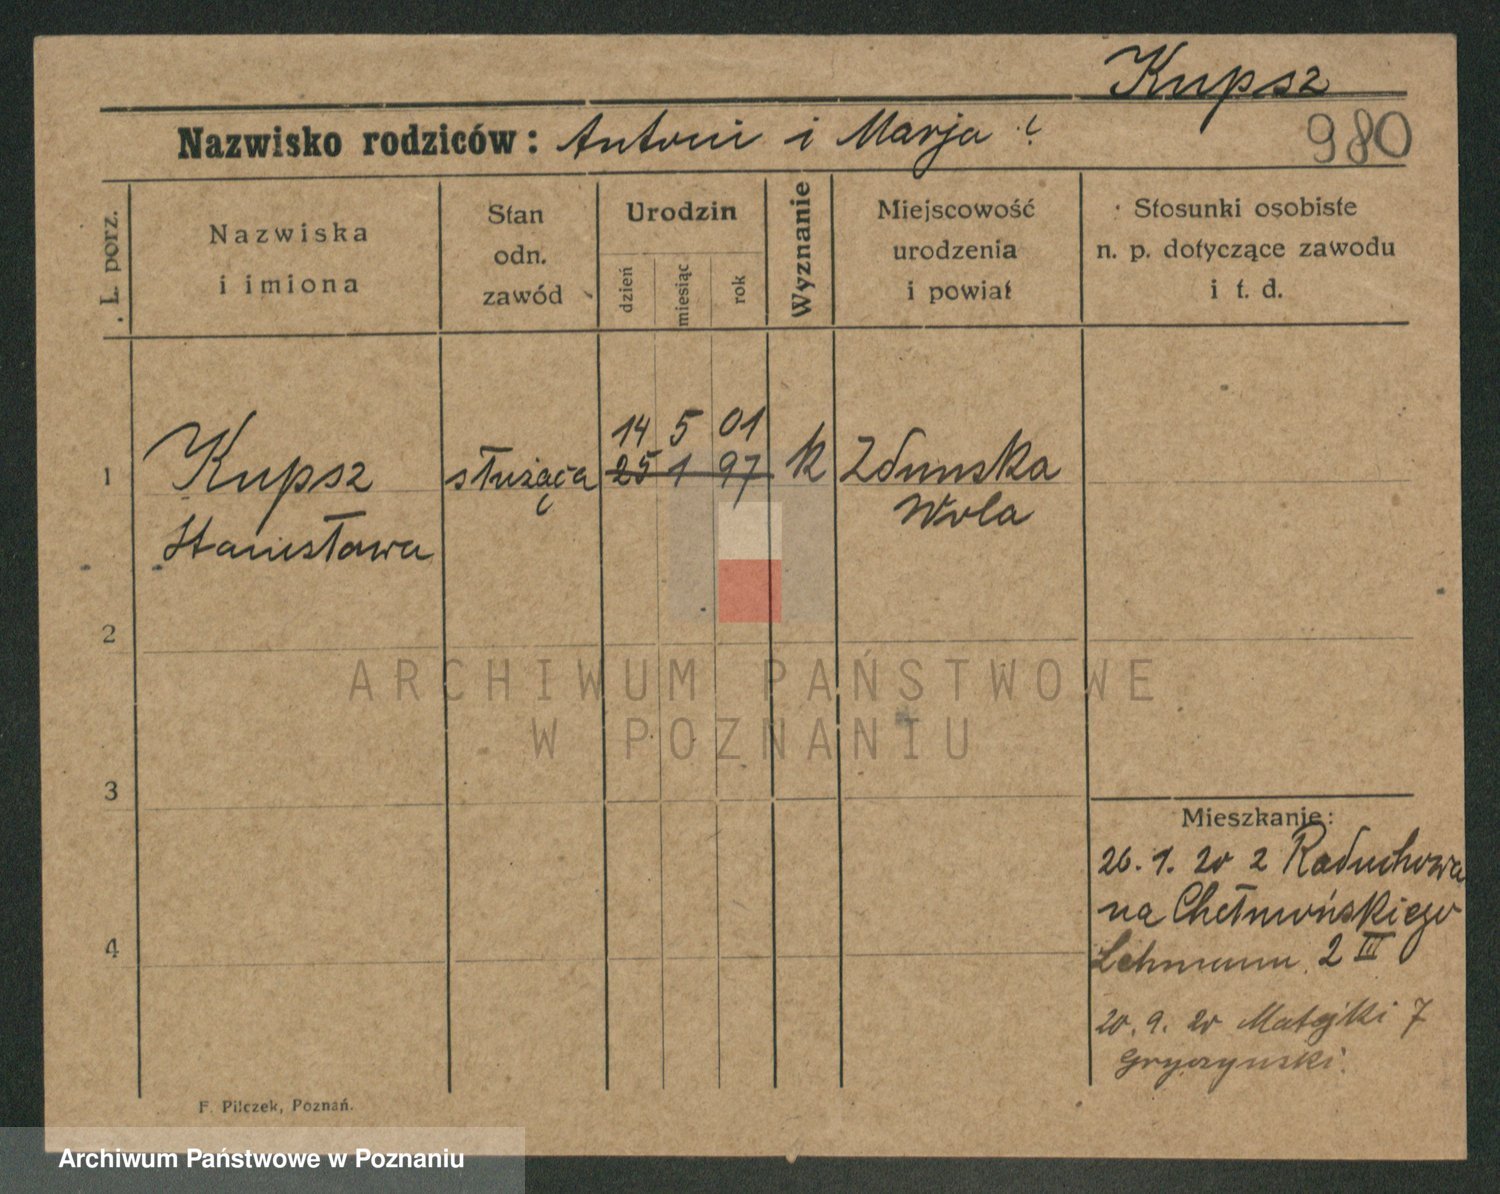 Kupsz
Nazwisko rodziców: Antoni i Marja ?
980
L. porz.
Nazwiska
i imiona
Stan
odn.
zawód
Urodzin
dzień
miesiąc
rok
Wyznanie
Miejscowość
urodzenia
i powiat
Stosunki osobiste
n. p. dotyczące zawodu
i t. d.
14 5 01
1 Kupsz służąca 25 1 97 k Zduńska
Stanisława Wola
2
ARCHIWUM PAŃSTWOWE
W POZNANIU
3
Mieszkanie:
26. 1. 20 z Raduchowa
na Chełmońskiego
4
Lehmann 2 III
20. 9. 20 Matejki 7
F. Pilczek, Poznań.
Archiwum Państwowe w Poznaniu